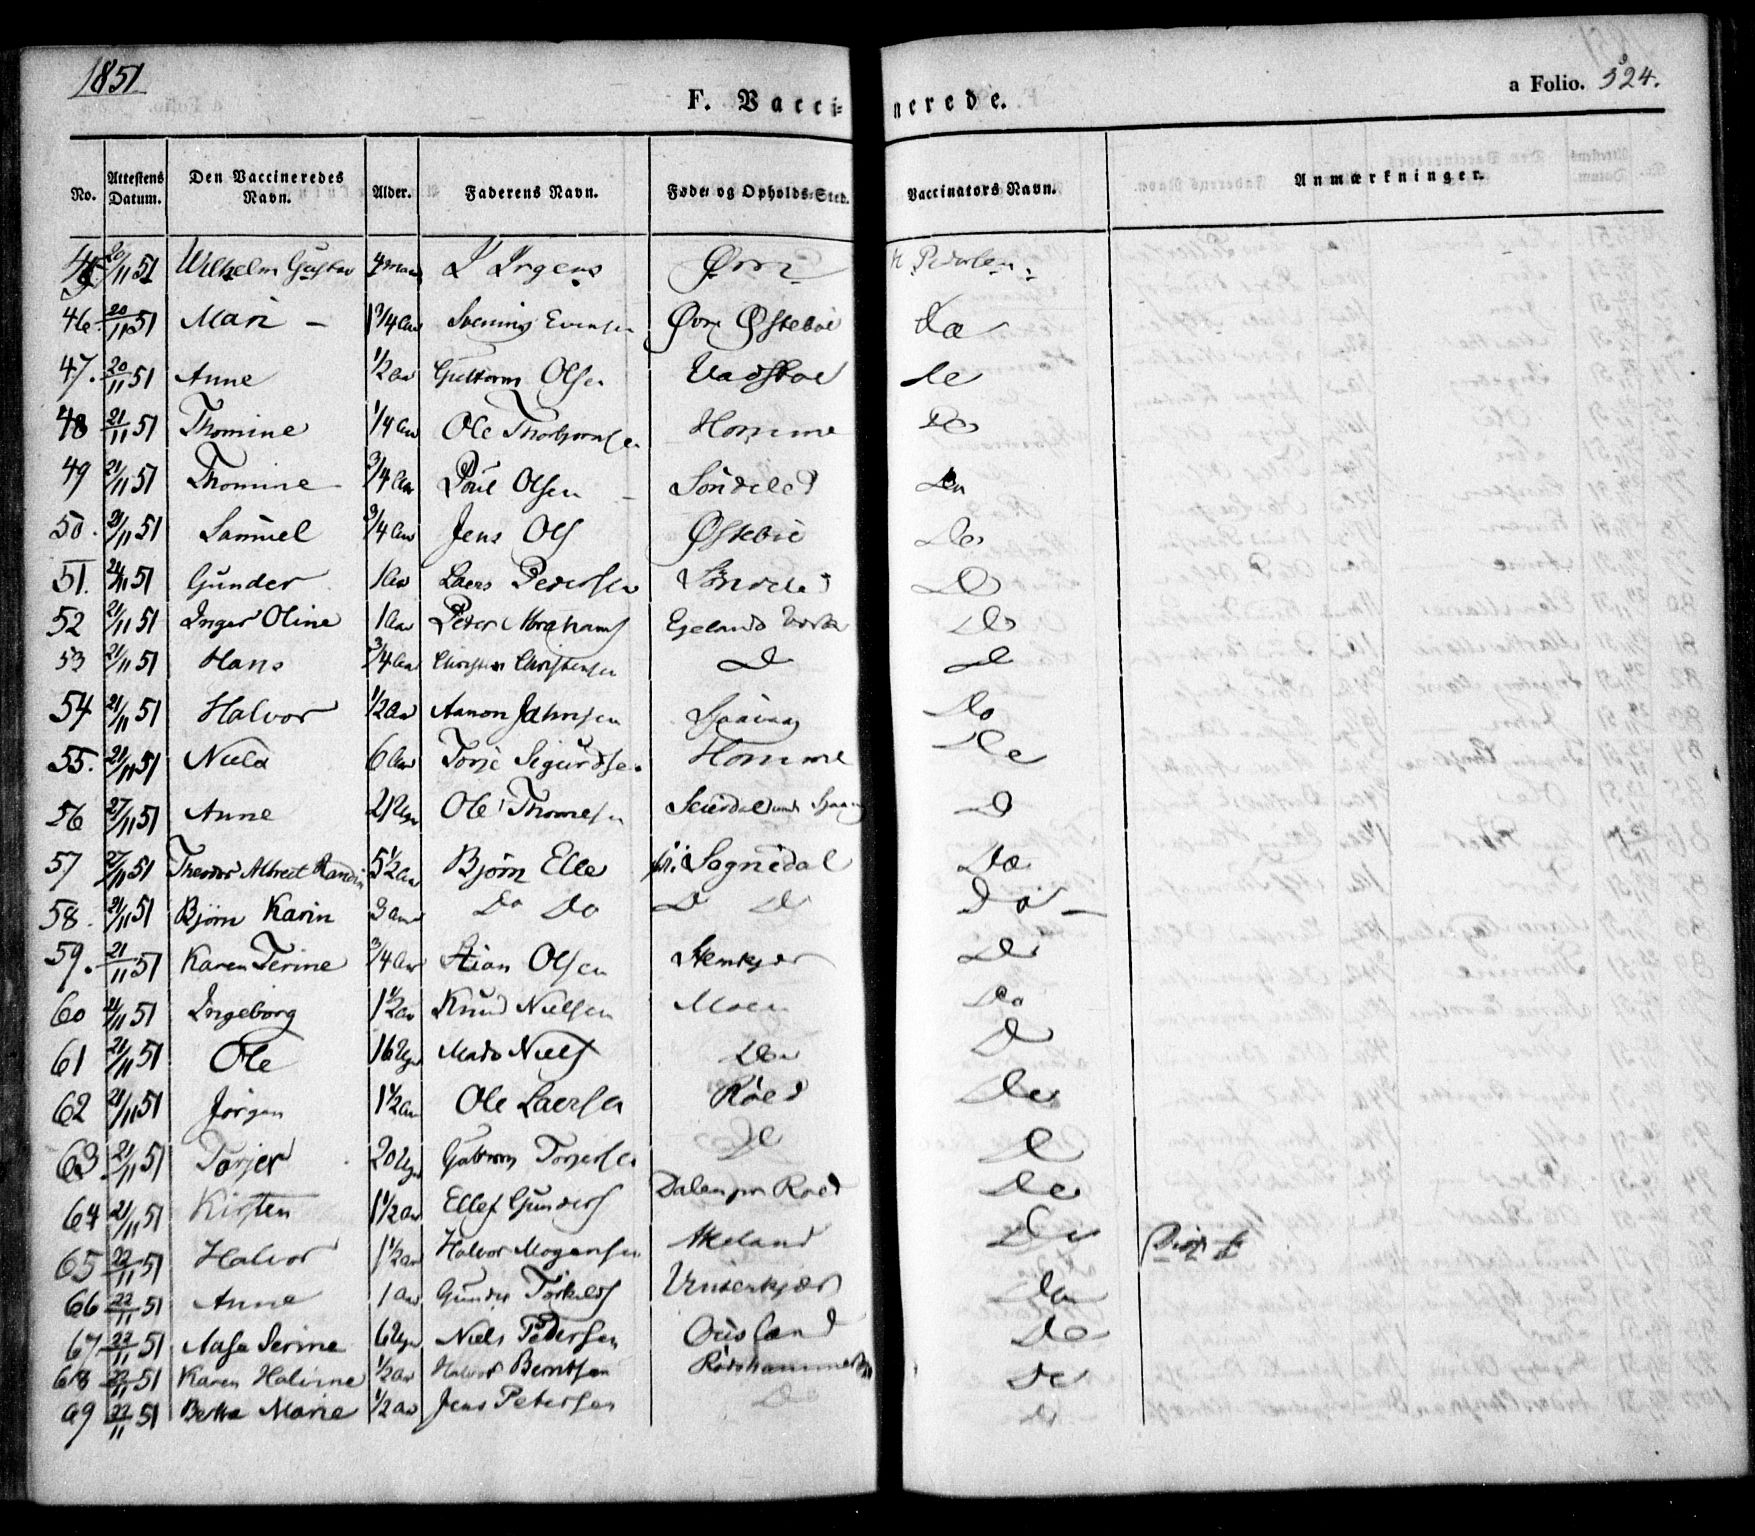 1851
F. Vaccinerede.
a Folio. 324.
No. Attestens Datum. Den Vaccineredes Navn. Alder. Faderens Navn. Føde- og Opholds-Sted. Vaccinators Navn. Anmærkninger.
45 20/11 51 Wilhelm Gustav 4 Irgens
46. 20/11 51 Mari – 1 3/4 Aar Evensen Østebøe Do
47. 20/11 51 Anne 1/2 Aar Guttorm Olsen Do
48 21/11 51 Thomine 1/4 Aar Ole Thorbjørnsen Homme Do
49 21/11 51 Thomine 3/4 Aar Poul Olsen Søndeled Do
50. 21/11 51 Samuel 3/4 Aar Jens Ols Østebøe Do
51. 21/11 51 Gunder 1 Aar Laers Pedersen Søndeled Do
52 21/11 51 Inger Oline 1 Aar Peder Abrahams Egelands Værk Do
53 21/11 51 Hans 3/4 Aar Christen Christensen D D
54 21/11 51 Halvor 1/2 Aar Aanon Jahnsen Do
55. 21/11 51 6 Aar Torje Sigurdsen Homme Do
56 27/11 51 Anne Ole Thomesen D
57 27/11 51 Theodor Albrect 5 1/2 Aar Bjørn Elle Sognedal Do
58. 21/11 51 Bjørn Karin 3 Aar Do Do D D Do –
59. 21/11 51 Karen Terine 3/4 Aar Olsen Stenkjær Do
60 21/11 51 Ingeborg 1 1/2 Aar Knud Nielsen Moen Do
61 21/11 51 Ole 16 Uger Mads Niels Do D
62 21/11 51 Jørgen 1 1/2 Aar Ole Laersen Røed Do
63 21/11 51 Torjer 20 Uger Guttorm Torjersen D D
64 21/11 51 Kirsten 1 1/2 Aar Ellef Gunders Dalen Røed Do
65 22/11 51 Halvor 1 1/2 Aar Halvor Mogensen Akeland Do
66 22/11 51 Anne 1 Aar Gunder Torkels Do
67 22/11 51 Aase Serine 6 Uger Niels Pedersen Ousland Do
68 22/11 51 Karen Halvine 1/2 Aar Halvor Berntsen Do
69 22/11 51 Bertha Marie 1/2 Aar Jens Petersen D Do